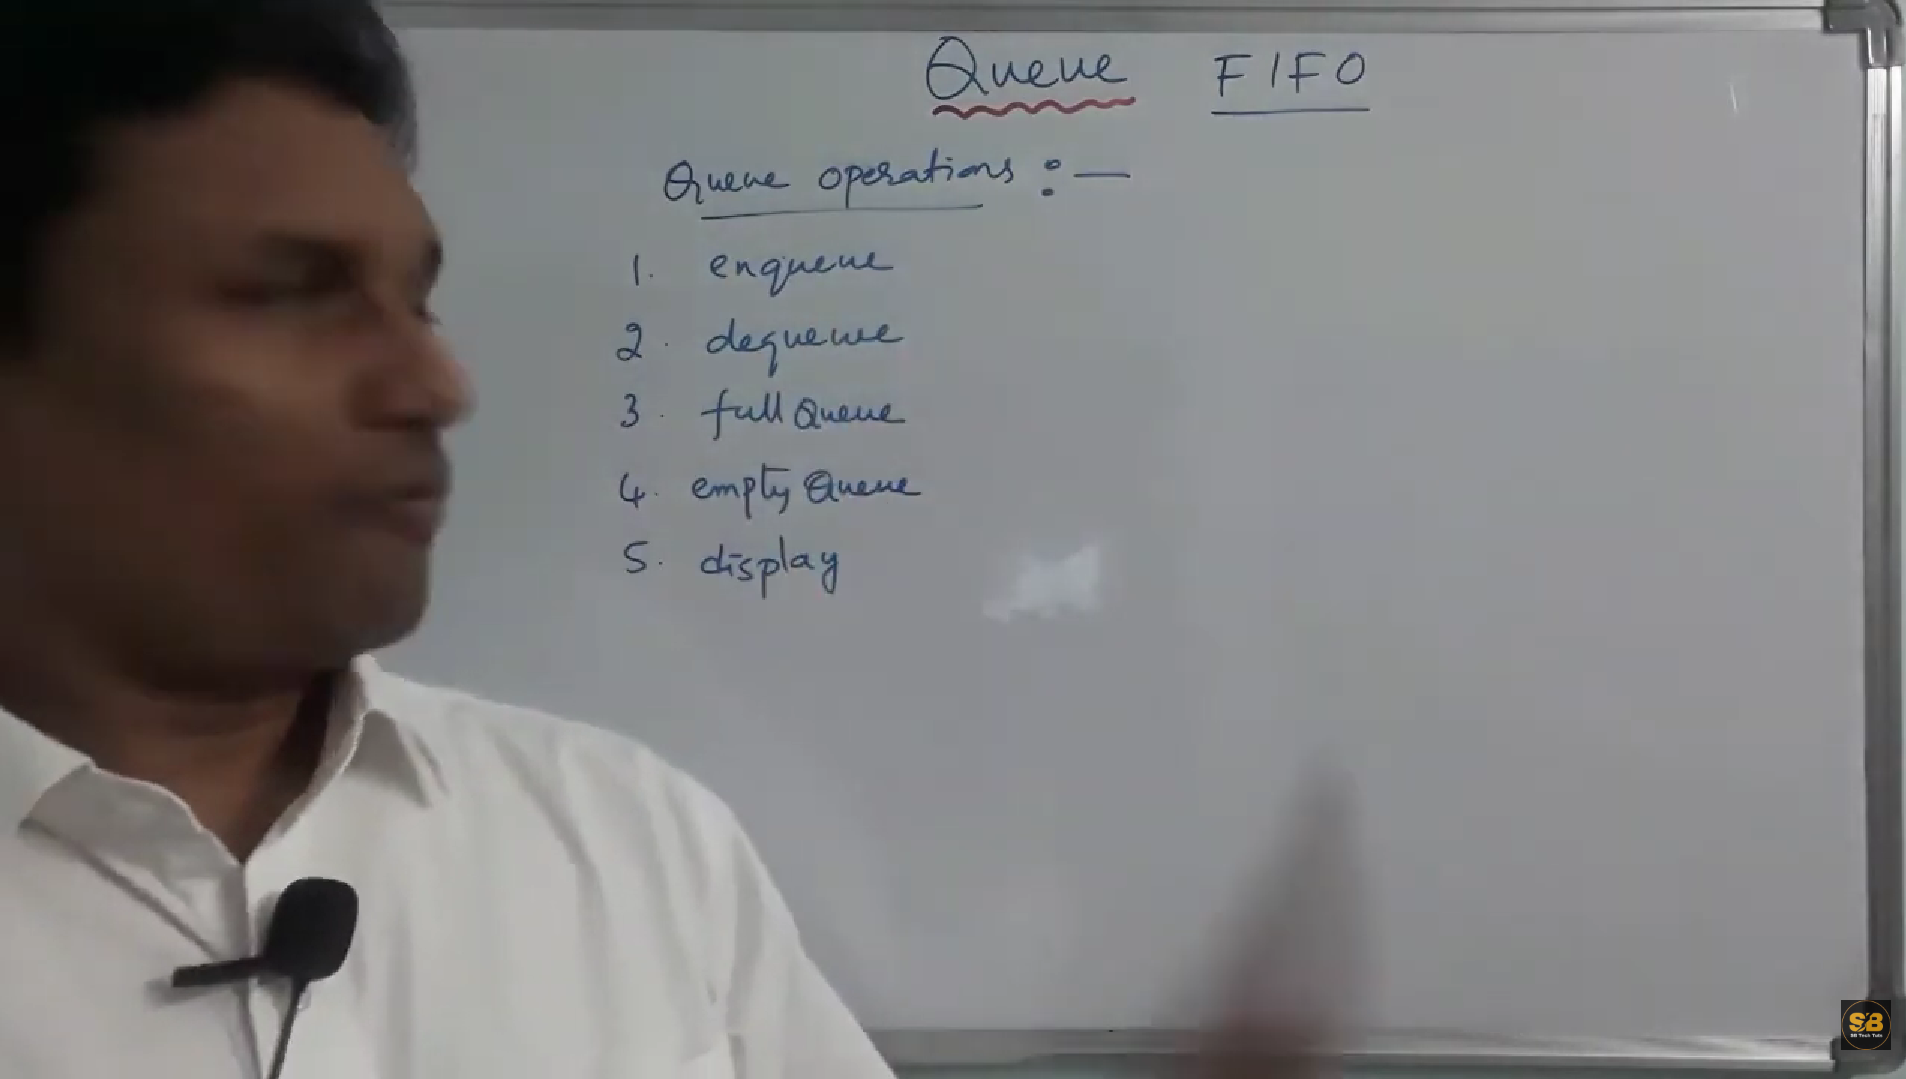 Queue FIFO
Queue operations :—
1. enqueue
2. dequeue
3. fullQueue
4. emptyQueue
5. display
SB
SB Tech Tuts